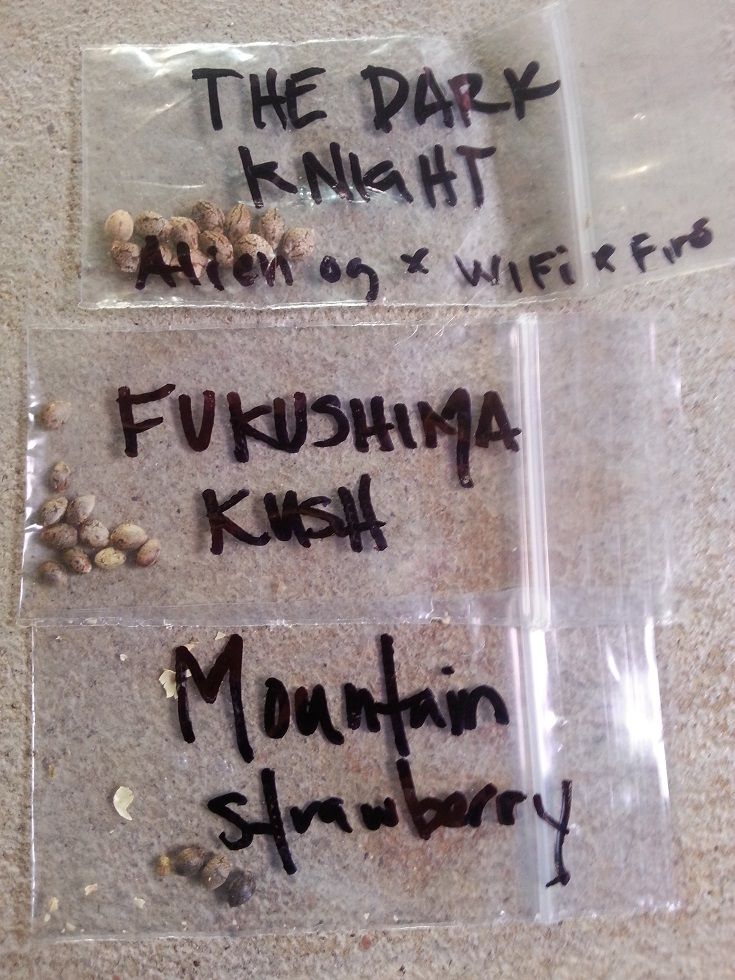 THE DARK
KNIGHT
Alien og x WIFi x Fire
FUKUSHIMA
KUSH
Mountain
strawberry